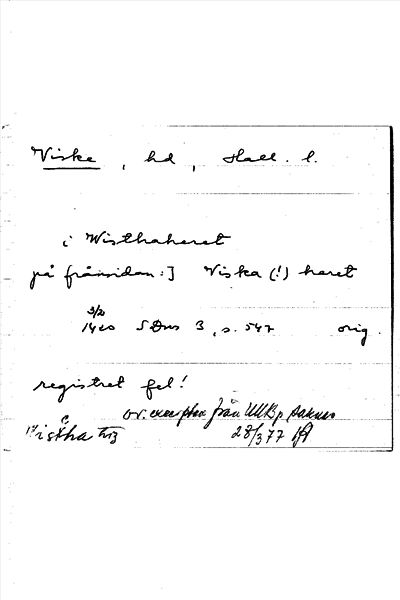 Viske, hd, Hall. l.
i Wisthaheret
på frånsidan:] Viska (!) heret
3/2
1420 SDns 3, s. 547 orig.
registret fel!
ov. excerpten från UUB, p saknas
c
Wistha hrz 28/3 77